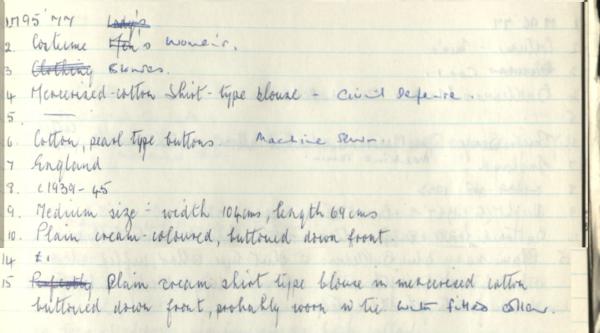 1 M95'77 Lady's
2. Costume Men's Women's.
3 Clothing Blouses.
4 Mercerised-cotton Shirt-type blouse - Civil Defence.
5. —
6. Cotton, pearl type buttons. Machine Sewn.
7 England
8. c1939-45
9. Medium size - width 104cms, length 69cms
10. Plain cream-coloured, buttoned down front.
14 £.
15 Perfectly Plain cream shirt type blouse in mercerised cotton
buttoned down front, probably worn w tie with fitted collar.